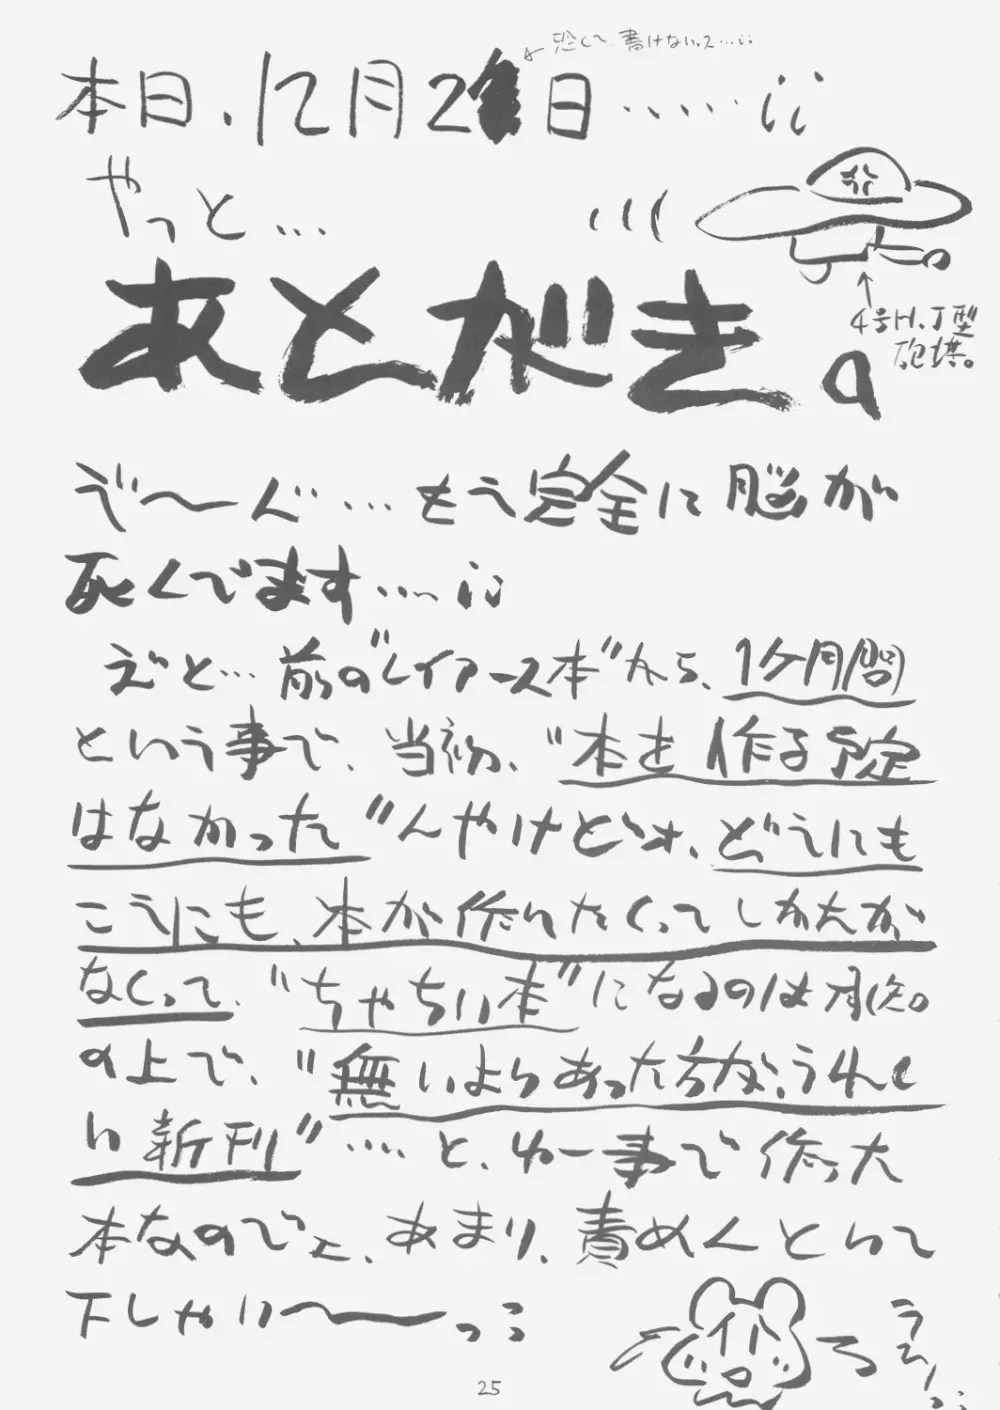 恐くて、書けないっス…;;
本日、12月2日……;;
やっと…
あとがき。
4号H.J型
砲塔。
う〜ん…もう完全に脳が
死んでます…;;
えと…前の"レイアース本"から、1ケ月間
という事で、当初、"本を作る予定
はなかった"んやけどネ、どうにも
こうにも、本が作りたくってしかたが
なくって、"ちゃちい本"になるのは承知。
の上で、"無いよりあった方が、うれし
い新刊"…と、ゆー事で作った
本なので、あまり、責めんといて
下しゃい〜〜っ;;
25